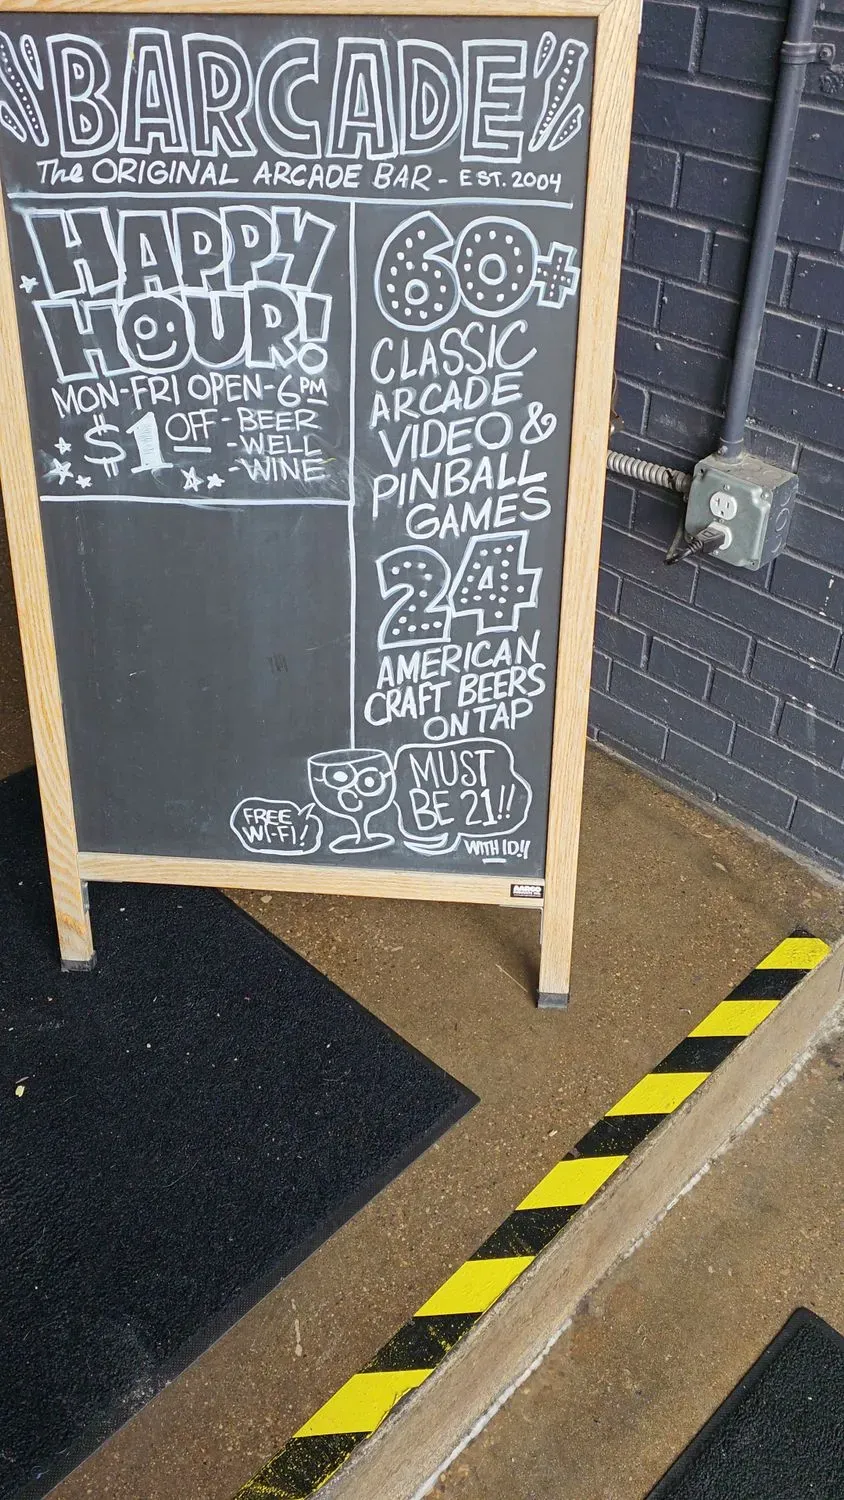 BARCADE
The ORIGINAL ARCADE BAR - EST. 2004
HAPPY
HOUR!
MON-FRI OPEN-6PM
$1 OFF - BEER
- WELL
- WINE
60+
CLASSIC
ARCADE
VIDEO &
PINBALL
GAMES
24
AMERICAN
CRAFT BEERS
ON TAP
FREE
WI-FI!
MUST
BE 21!!
WITH ID!!
AARCO